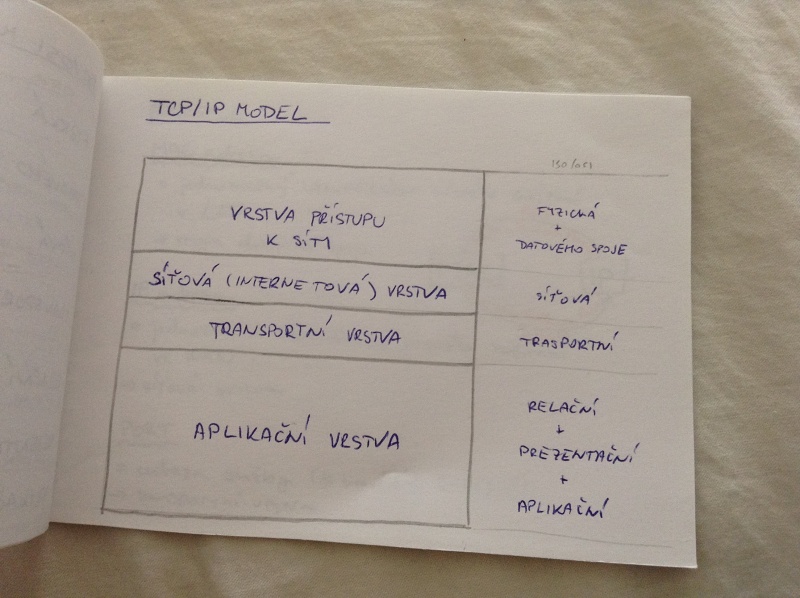 TCP/IP MODEL
ISO/OSI
VRSTVA PŘÍSTUPU
K SÍTI
FYZICKÁ
+
DATOVÉHO SPOJE
SÍŤOVÁ (INTERNETOVÁ) VRSTVA
SÍŤOVÁ
TRANSPORTNÍ VRSTVA
TRASPORTNÍ
APLIKAČNÍ VRSTVA
RELAČNÍ
+
PREZENTAČNÍ
+
APLIKAČNÍ